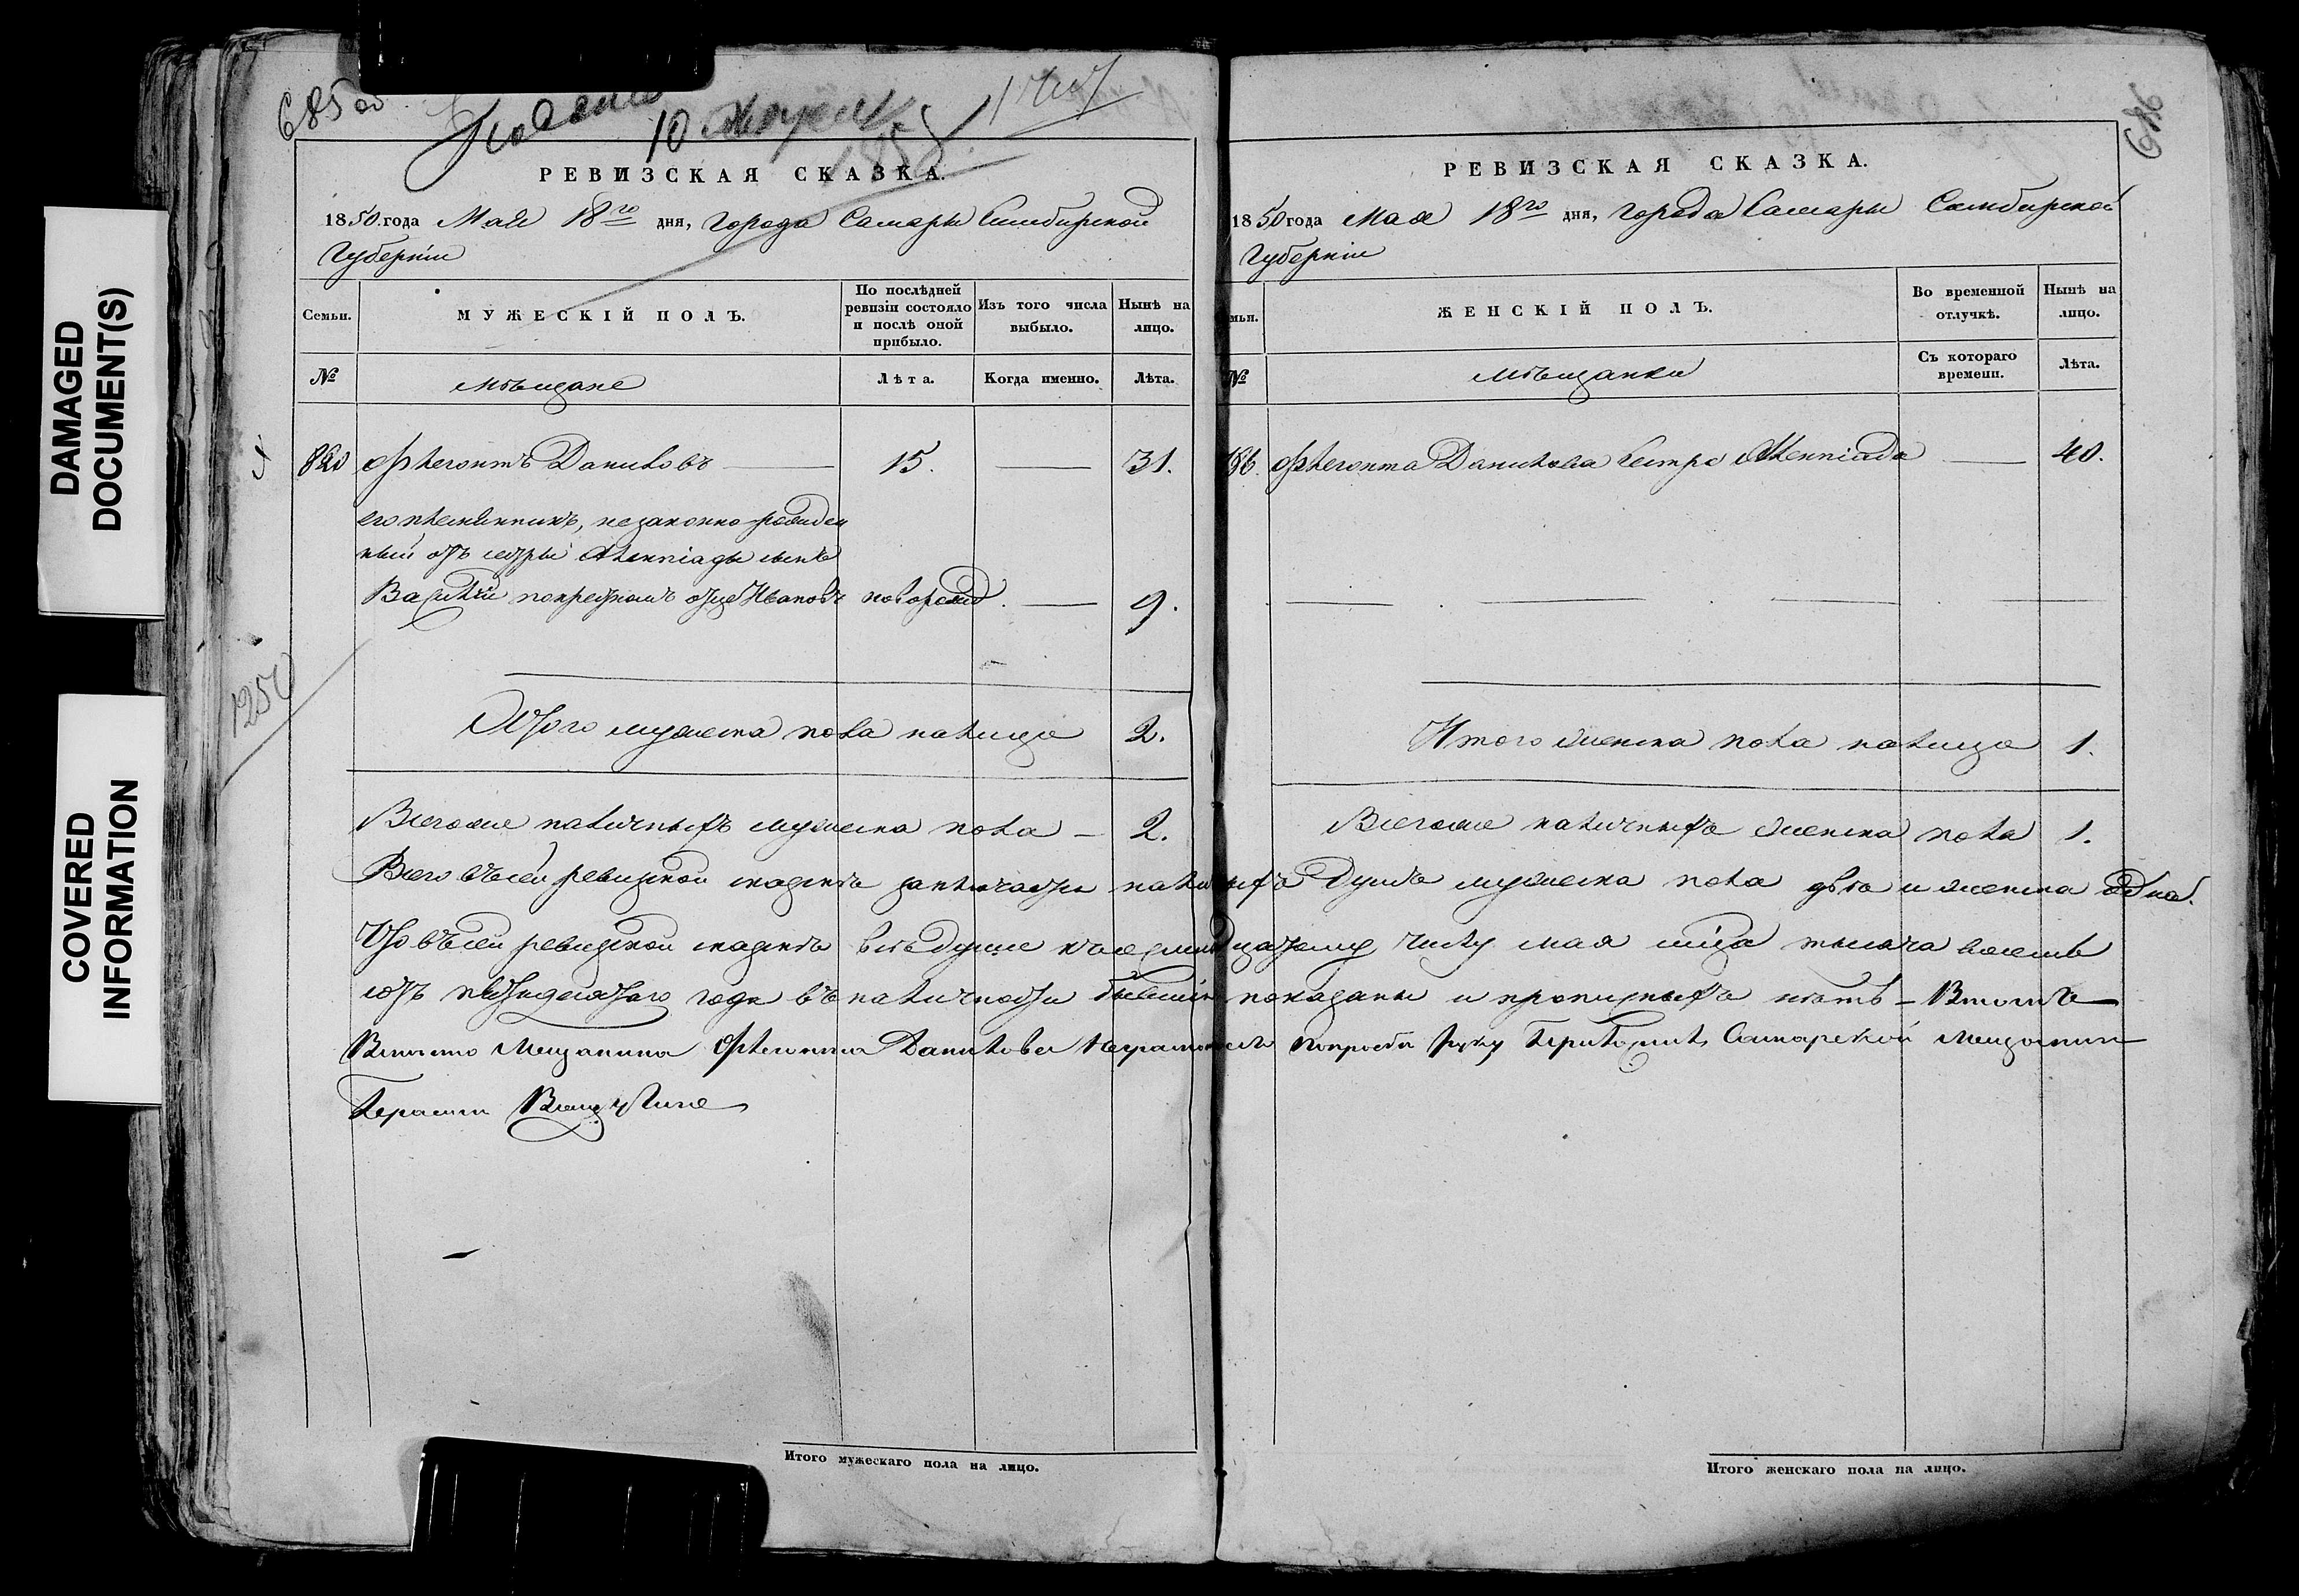 DAMAGED
DOCUMENT(S)
COVERED
INFORMATION
685 об
10
РЕВИЗСКАЯ СКАЗКА.
1850 года Мая 18го дня, города Самары Симбирской
Губерніи
Семьи.
МУЖЕСКІЙ ПОЛЪ.
По послѣдней ревизіи состояло и послѣ оной прибыло.
Изъ того числа выбыло.
Нынѣ на лицо.
№
мѣщане
Лѣта.
Когда именно.
Лѣта.
Флегонтъ Даниловъ 15. 31.
его племянникъ, незаконно-рожден
ный отъ сестры Олимпіады сынъ
Василій по крестномъ отце Ивановъ новорожд. 9.
1250
Итого мужеска пола налицо 2.
Всегоже наличныхъ мужеска пола - 2.
686
РЕВИЗСКАЯ СКАЗКА.
1850 года Мая 18го дня, города Самары Симбирской
Губерніи
мьи.
ЖЕНСКІЙ ПОЛЪ.
Во временной отлучкѣ.
Нынѣ на лицо.
№
мѣщанки
Съ котораго времени.
Лѣта.
Флегонта Данилова сестра Олимпіада 40.
Итого женска пола налицо 1.
Всегоже наличныхъ женска пола 1.
Всего въ сей ревизской сказкѣ заключается наличныхъ душъ мужеска пола двѣ и женска одна.
Что въ сей ревизской сказкѣ всѣ души къ восемнадцатому числу мая мѣца тысяча восемь
сотъ пятидесятаго года въ наличности бывшія показаны и прописныхъ нѣтъ - Втомъ
Вместо Мещанина Флегонта Данилова Неграмотнаго по просьбе руку приложилъ Самарской Мещанин
Герасим
Итого мужескаго пола на лицо.
Итого женскаго пола на лицо.